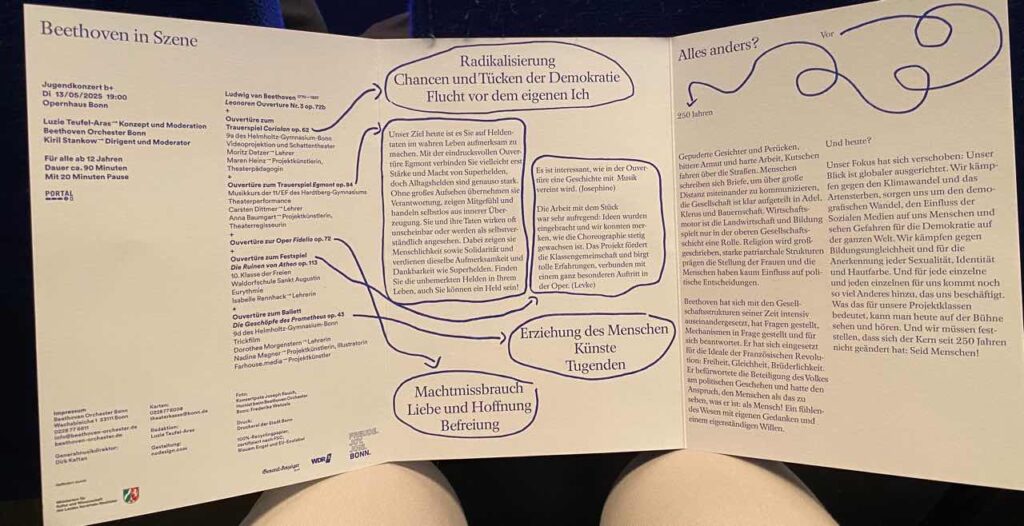 Beethoven in Szene
Jugendkonzert b+
Di 13/05/2025 19:00
Opernhaus Bonn
Luzie Teufel-Aras → Konzept und Moderation
Beethoven Orchester Bonn
Kiril Stankow → Dirigent und Moderator
Für alle ab 12 Jahren
Dauer ca. 90 Minuten
Mit 20 Minuten Pause
PORTAL
Ludwig van Beethoven
Leonoren Ouvertüre Nr. 3 op. 72b
+
Ouvertüre zum
Trauerspiel Coriolan op. 62
9a des Helmholtz-Gymnasium-Bonn
Videoprojektion und Schattentheater
Moritz Detzer → Lehrer
Maren Heinz → Projektkünstlerin,
Theaterpädagogin
+
Ouvertüre zum Trauerspiel Egmont op. 84
Musikkurs der 11/EF des Hardtberg-Gymnasiums
Theaterperformance
Carsten Dittmer → Lehrer
Anna Baumgart → Projektkünstlerin,
Theaterregisseurin
+
Ouvertüre zur Oper Fidelio op. 72
+
Ouvertüre zum Festspiel
Die Ruinen von Athen op. 113
10. Klasse der Freien
Waldorfschule Sankt Augustin
Eurythmie
Isabelle Rennhack → Lehrerin
+
Ouvertüre zum Ballett
Die Geschöpfe des Prometheus op. 43
9d des Helmholtz-Gymnasium-Bonn
Trickfilm
Dorothea Morgenstern → Lehrerin
Nadine Magner → Projektkünstlerin, Illustratorin
Farhouse.media → Projektkünstler
Impressum
Beethoven Orchester Bonn
Wachsbleiche 1 53111 Bonn
0228 77 6611
info@beethoven-orchester.de
beethoven-orchester.de
Generalmusikdirektor:
Dirk Kaftan
Karten:
theaterkasse@bonn.de
Redaktion:
Luzie Teufel-Aras
Gestaltung:
nodesign.com
Foto:
Druck:
Druckerei der Stadt Bonn
100% Recyclingpapier,
zertifiziert nach FSC,
Blauem Engel und EU-Ecolabel
Ministerium für
Kultur und Wissenschaft
des Landes Nordrhein-Westfalen
General-Anzeiger
WDR
FREUDE.
JOY.
JOIE.
BONN.
Radikalisierung
Chancen und Tücken der Demokratie
Flucht vor dem eigenen Ich
Unser Ziel heute ist es Sie auf Helden-
taten im wahren Leben aufmerksam zu
machen. Mit der eindrucksvollen Ouver-
türe Egmont verbinden Sie vielleicht erst
Stärke und Macht von Superhelden,
doch Alltagshelden sind genauso stark.
Ohne großes Aufsehen übernehmen sie
Verantwortung, zeigen Mitgefühl und
handeln selbstlos aus innerer Über-
zeugung. Sie und ihre Taten wirken oft
unscheinbar oder werden als selbstver-
ständlich angesehen. Dabei zeigen sie
Menschlichkeit sowie Solidarität und
verdienen dieselbe Aufmerksamkeit und
Dankbarkeit wie Superhelden. Finden
Sie die unbemerkten Helden in Ihrem
Leben, auch Sie können ein Held sein!
Es ist interessant, wie in der Ouver-
türe eine Geschichte mit Musik
vereint wird. (Josephine)
Die Arbeit mit dem Stück
war sehr aufregend: Ideen wurden
eingebracht und wir konnten mer-
ken, wie die Choreographie stetig
gewachsen ist. Das Projekt fördert
die Klassengemeinschaft und birgt
tolle Erfahrungen, verbunden mit
einem ganz besonderen Auftritt in
der Oper. (Levke)
Erziehung des Menschen
Künste
Tugenden
Machtmissbrauch
Liebe und Hoffnung
Befreiung
Alles anders?
Vor
250 Jahren
Gepuderte Gesichter und Perücken,
bittere Armut und harte Arbeit, Kutschen
fahren über die Straßen. Menschen
schreiben sich Briefe, um über große
Distanz miteinander zu kommunizieren,
die Gesellschaft ist klar aufgeteilt in Adel,
Klerus und Bauernschaft. Wirtschafts-
motor ist die Landwirtschaft und Bildung
spielt nur in der oberen Gesellschafts-
schicht eine Rolle. Religion wird groß-
geschrieben, starke patriarchale Strukturen
prägen die Stellung der Frauen und die
Menschen haben kaum Einfluss auf poli-
tische Entscheidungen.
Beethoven hat sich mit den Gesell-
schaftsstrukturen seiner Zeit intensiv
auseinandergesetzt, hat Fragen gestellt,
Mechanismen in Frage gestellt und für
sich beantwortet. Er hat sich eingesetzt
für die Ideale der Französischen Revolu-
tion: Freiheit, Gleichheit, Brüderlichkeit.
Er befürwortete die Beteiligung des Volkes
am politischen Geschehen und hatte den
Anspruch, den Menschen als das zu
sehen, was er ist: als Mensch! Ein fühlen-
des Wesen mit eigenen Gedanken und
einem eigenständigen Willen.
Und heute?
Unser Fokus hat sich verschoben: Unser
Blick ist globaler ausgerichtet. Wir kämp-
fen gegen den Klimawandel und das
Artensterben, sorgen uns um den demo-
grafischen Wandel, den Einfluss der
Sozialen Medien auf uns Menschen und
sehen Gefahren für die Demokratie auf
der ganzen Welt. Wir kämpfen gegen
Bildungsungleichheit und für die
Anerkennung jeder Sexualität, Identität
und Hautfarbe. Und für jede einzelne
und jeden einzelnen für uns kommt noch
so viel Anderes hinzu, das uns beschäftigt.
Was das für unsere Projektklassen
bedeutet, kann man heute auf der Bühne
sehen und hören. Und wir müssen fest-
stellen, dass sich der Kern seit 250 Jahren
nicht geändert hat: Seid Menschen!